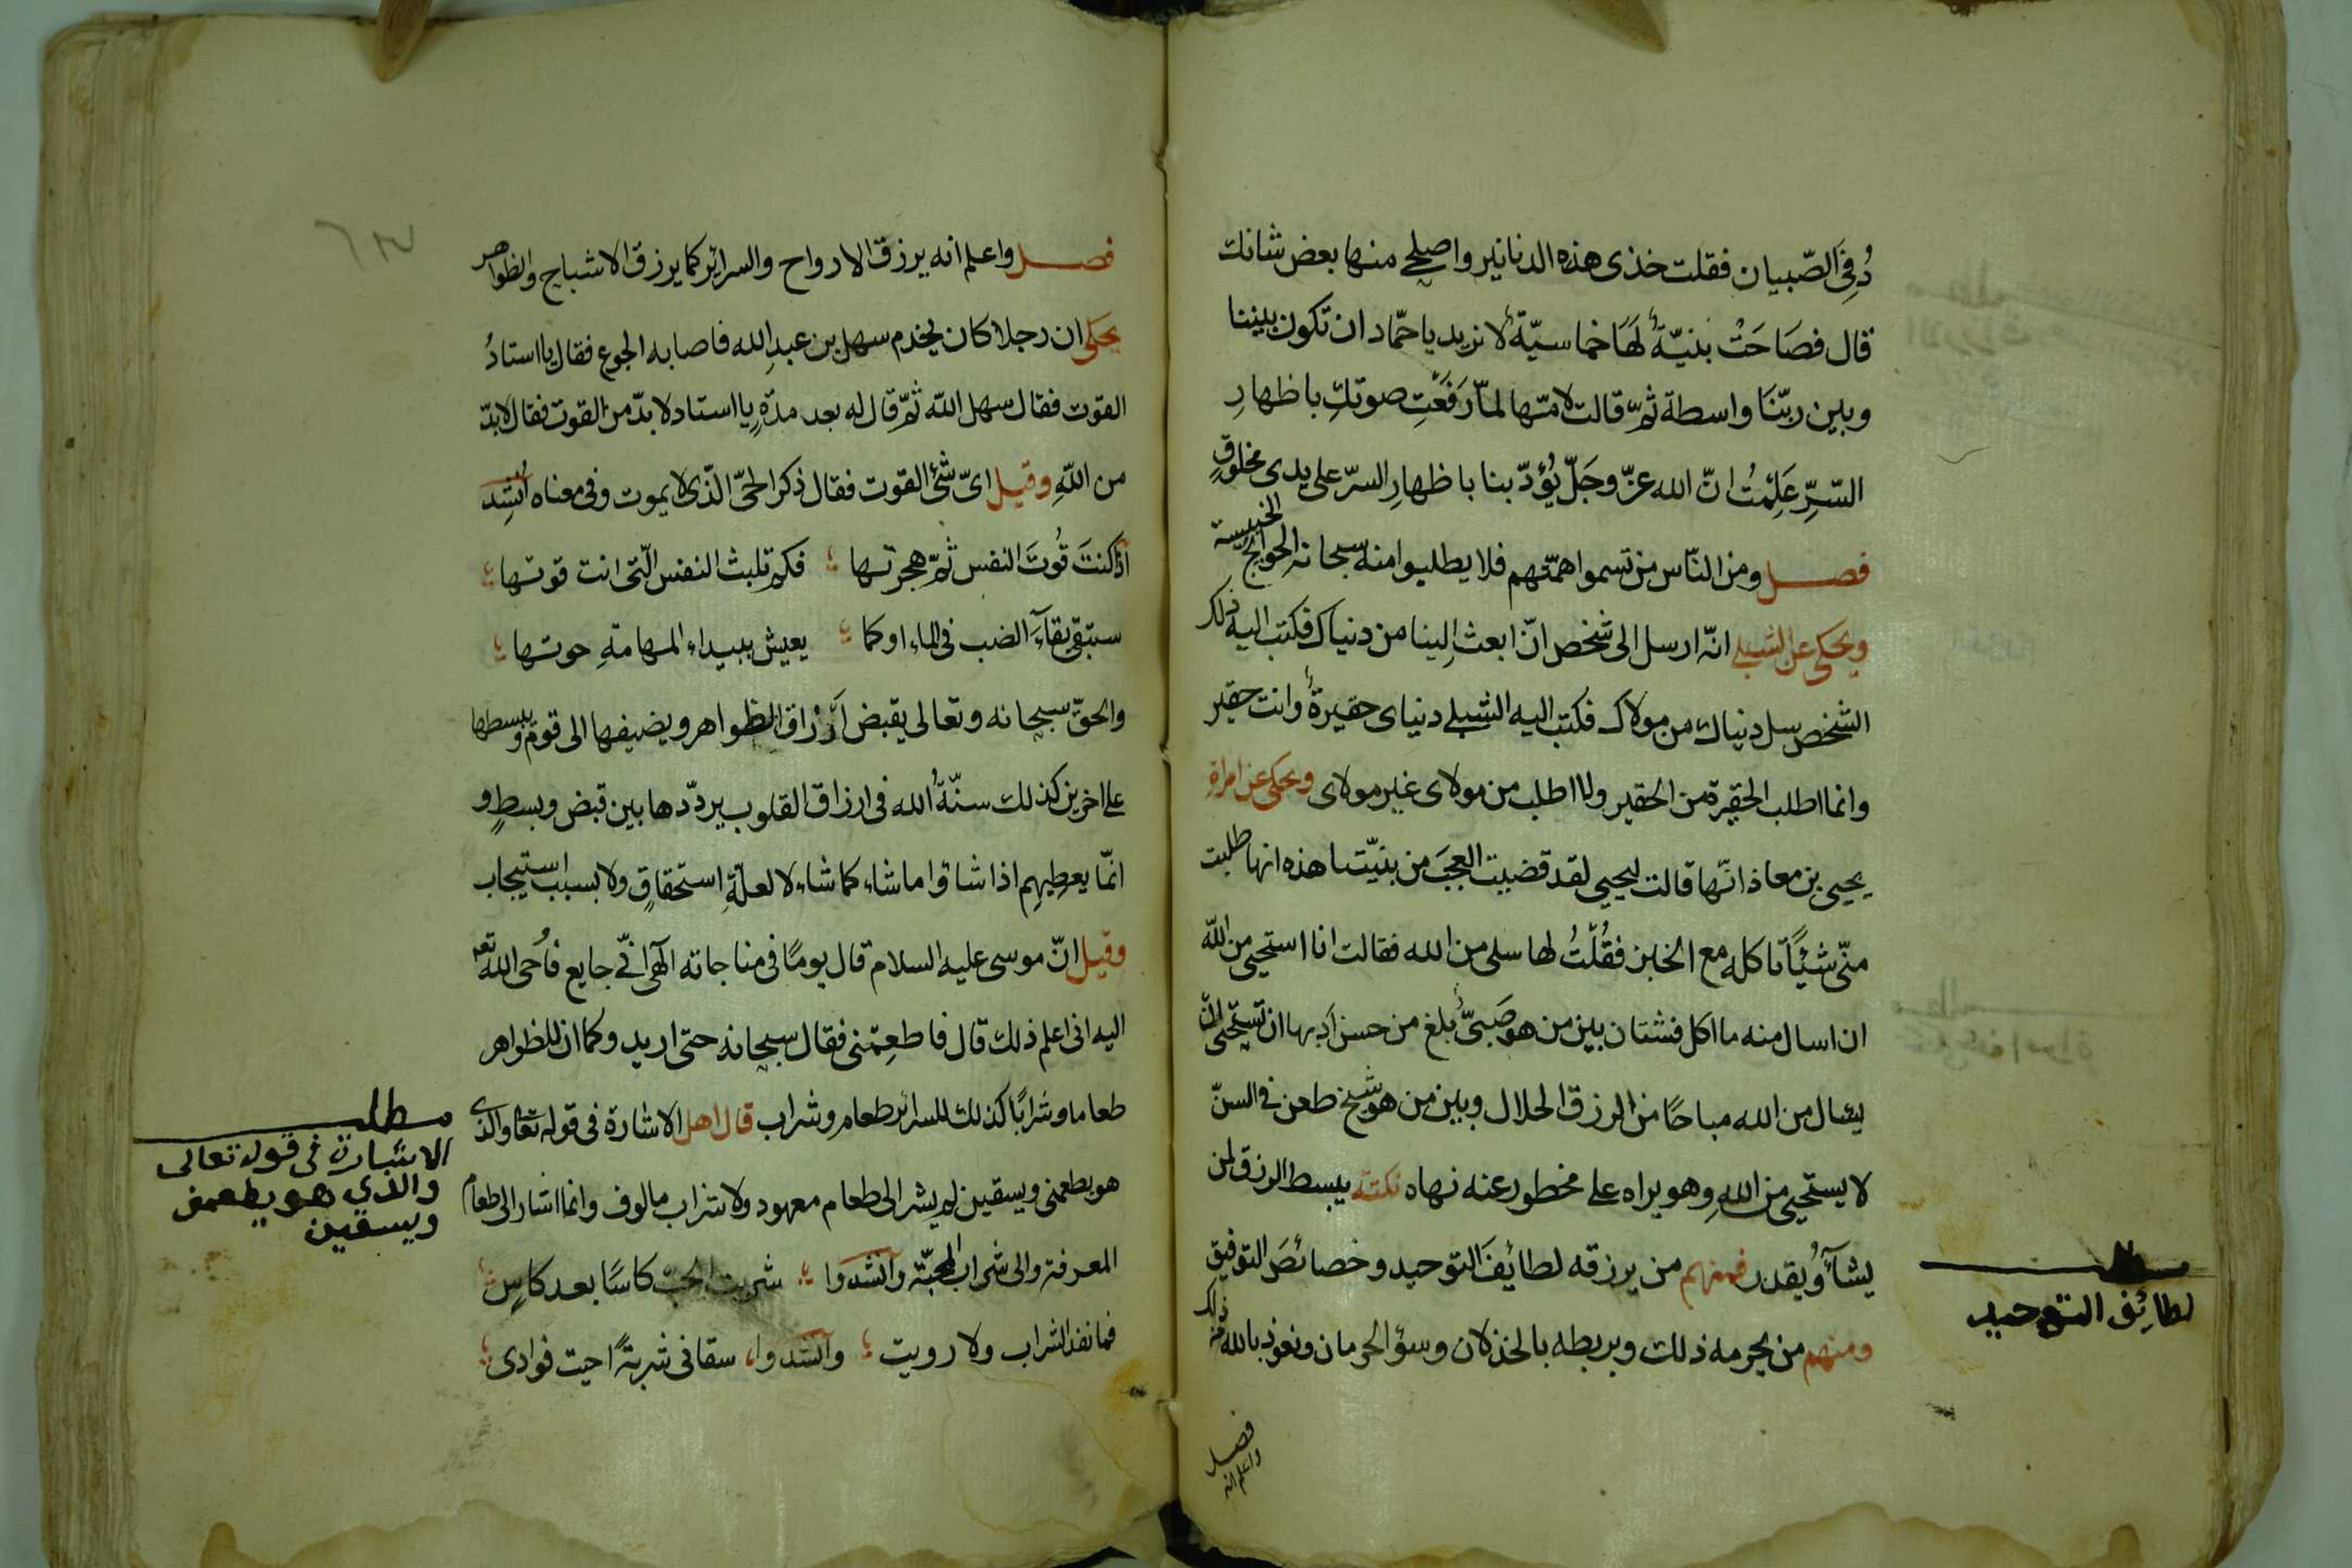 دُ فِی الصّبيان فقلت خذی هذه الدنانير واصلحی منها بعض شانك
قال فصَاحَتْ بنيّةٌ لَهَا خماسيّةٌ لا نريد يا حمّاد ان تكون بيننا
وبين ربّنَا واسطة ثمّ قالت لامّها لمّا رَفَعْتِ صوتكِ باظهارِ
السّرِّ عَلِمْتُ انّ الله عزّ وجَلّ يُؤدّبنا باظهارِ السرّ على يدی مخلوقٍ
فصل ومن النّاس من تسموا همّتهم فلا يطلبوا منه سبحانه الحوائج الخسيسة
ويحكی عن الشبلی انّه ارسل الى شخص انّ ابعث اِلينا من دنياك فكتب اليه ذلك
الشخص سل دنياك من مولاك فكتب اليه الشبلی دنيای حقيرةٌ وانت حقير
وانما اطلب الحقيرة من الحقير ولا اطلب من مولای غير مولای ويحكی عن امراةِ
يحيی بن معاذ انّها قالت ليحيی لقد قضيت العجَبَ من بنيّتنا هذه انها طلبت
منّی شيْئًا تاكله مع الخبز فقُلْتُ لها سلی من الله فقالت انا استحيی من اللّه
ان اسال منه ما اكل فشتان بين من هو صَبیٌّ بلغ من حسن اَدبها ان تستحيی ان
يسال من الله مباحًا من الرزق الحلال وبين من هو شيخ طعن فی السنّ
لا يستحيی من اللهِ وهو يراه علی محظور عنه نهاه نكتة يبسط الرزق لمن
يشآءُ ويقدر فمنهم من يرزقه لطايفَ التوحيد وخصائصَ التوفيق
ومنهم من يحرمه ذلك ويربطه بالخذلان وسؤ الحرمان ونعوذ بالله من ذلك
فصل
واعلم انه
لطائف التوحيد
فصل واعلم انه يرزق الارواح والسرائر كما يرزق الاشباح والظواهر
يحكی ان رجلا كان يخدم سهل بن عبدِ الله فاصابه الجوع فقال يا استادُ
القوت فقال سهل اللّه ثمّ قال له بعد مدّةٍ يا استاد لا بدّ من القوت فقال لا بدّ
من اللّهِ وقيل ایّ شئ القوت فقال ذكر الحیّ الّذی لا يموت وفی معناه اُنشِد
اذا كنتَ قُوتَ النفس ثمّ هجرتها فكم تلبث النفس الّتی انت قوتها
ستبقی بقآءَ الضب فی الماء او كما يعيش ببيداء المهامةِ حوتها
والحقّ سبحانه وتعالی يقبض اَرزاق الظواهر ويضيفها الی قوم ويبسطها
علی اخرين كذلك سنّةُ الله فی ارزاق القلوب يردّدها بين قبض وبسطٍ و
انمّا يعطيهِم اذا شاؤا ما شاء كما شاء لا لعلّةِ استحقاقٍ ولا بسبب استيجاب
وقيل انّ موسی عليه السلام قال يومًا فی مناجاته الهی انّی جايع فاَوحی اللهُ تع
اليه انی اعلم ذلك قال فاطعِمْنی فقال سبحانه حتی اريد وكما ان للظواهر
طعاما وشرابًا كذلك للسرائر طعام وشراب قال اهل الاشارة فی قوله تعا والذی
هو يطعمنی ويسقين لم يشر الی طعام معهود ولا شراب مالوف وانما اشار الی طعام
المعرفة والی شراب المحبّة وانشدوا شربت الحبّ كاسًا بعد كاسٍ
فما نفد الشراب ولا رويت وانشدوا سقانی شربةً احيت فوادی
مطلب
الاشارة فی قوله تعالی
والذی هو يطعمنی
ويسقين